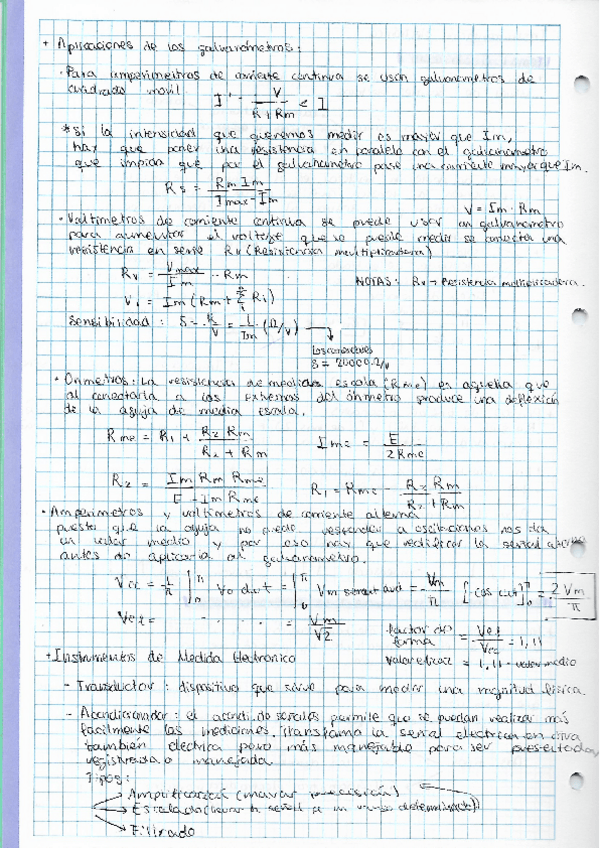 + Aplicaciones de los galvanómetros:
· Para amperímetros de corriente continua se usan galvanometros de
cuadrado movil
I' = V / (R + Rm) < I
* Si la intensidad que queremos medir es mayor que Im,
hay que poner una resistencia en paralelo con el galvanometro
que impida que por el galvanómetro pase una corriente mayor que Im.
Rs = Rm Im / (Imax - Im)
V = Im · Rm
· Voltímetros de corriente continua se puede usar un galvanometro
para aumentar el voltaje que se puede medir se conecta una
resistencia en serie Rv (Resistencia multiplicadora)
Rv = Vmax / Im - Rm
NOTAS: Rv → Resistencia multiplicadora.
Vi = Im (Rm + Σ Ri)
Sensibilidad: S = R / V = 1 / Im (Ω/V)
Los comerciales
S = 20000 Ω/V
· Ohmetros: La resistencia de media escala (Rme) es aquella que
al conectarla a los extremos del óhmetro produce una deflexión
de la aguja de media escala.
Rme = R1 + R2 Rm / (R2 + Rm)
Ime = E / 2Rme
R2 = Im Rm Rme / (E - Im Rme)
R1 = Rme - R2 Rm / (R2 + Rm)
· Amperimetros y voltímetros de corriente alterna
puesto que la aguja no puede responder a oscilaciones nos da
un valor medio y por eso hay que rectificar la señal
antes de aplicarla al galvanometro.
Vcc = 1/π ∫₀^π Vo dωt = ∫₀^π Vm sen ωt dωt = Vm/π [-cos ωt]₀^π = 2Vm/π
Vef = - - . . . . . = Vm/√2
factor de forma = Vef / Vcc = 1,11
valor eficaz = 1,11 · valor medio
+ Instrumentos de Medida Electronico
- Transductor: dispositivo que sirve para medir una magnitud física.
- Acondicionador: el acondi. de señales permite que se puedan realizar más
facilmente las mediciones. Transforma la señal electrica en otra
también electrica pero más manejable para ser presentada,
registrada o manejada
Tipos:
→ Amplificación (mayor precisión)
→ Escalado (llevar la señal a un rango determinado)
→ Filtrado